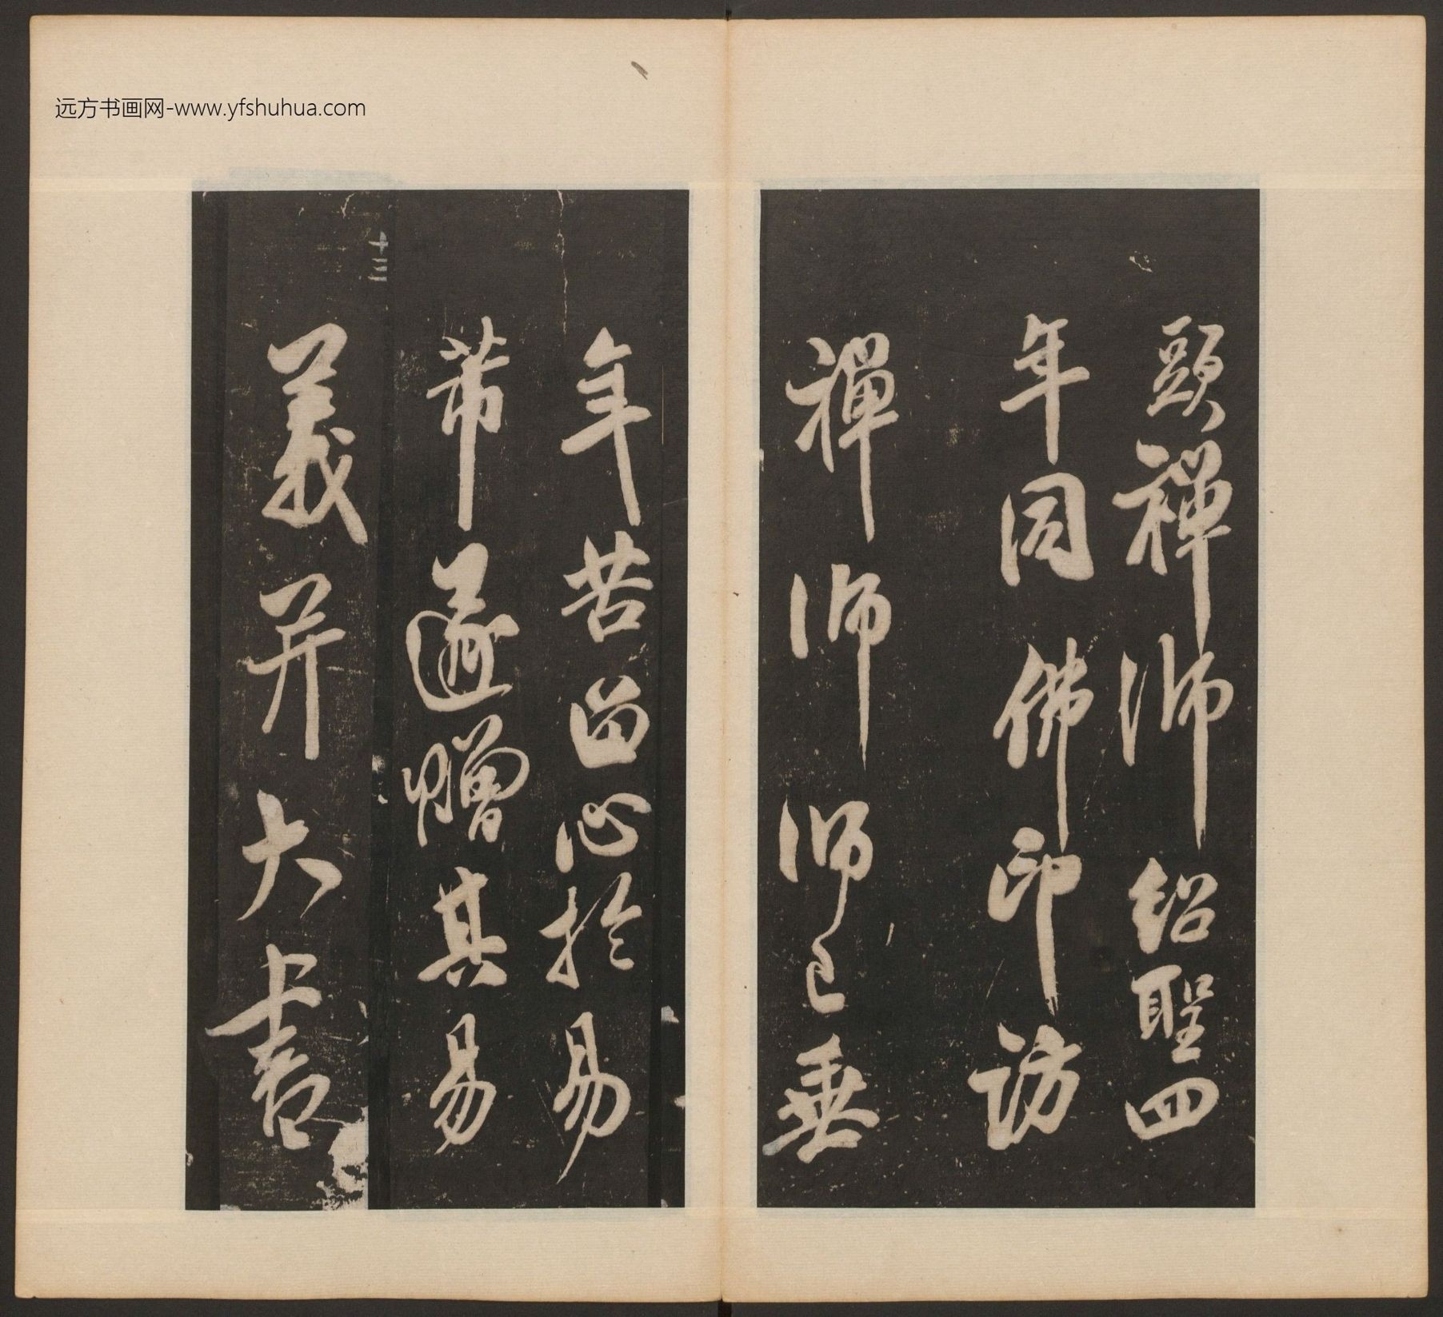 远方书画网-www.yfshuhua.com
頭禪師紹聖四
年同佛印訪
禪師師已垂
年苦留心於易
芾遂贈其易
義并大書
十三